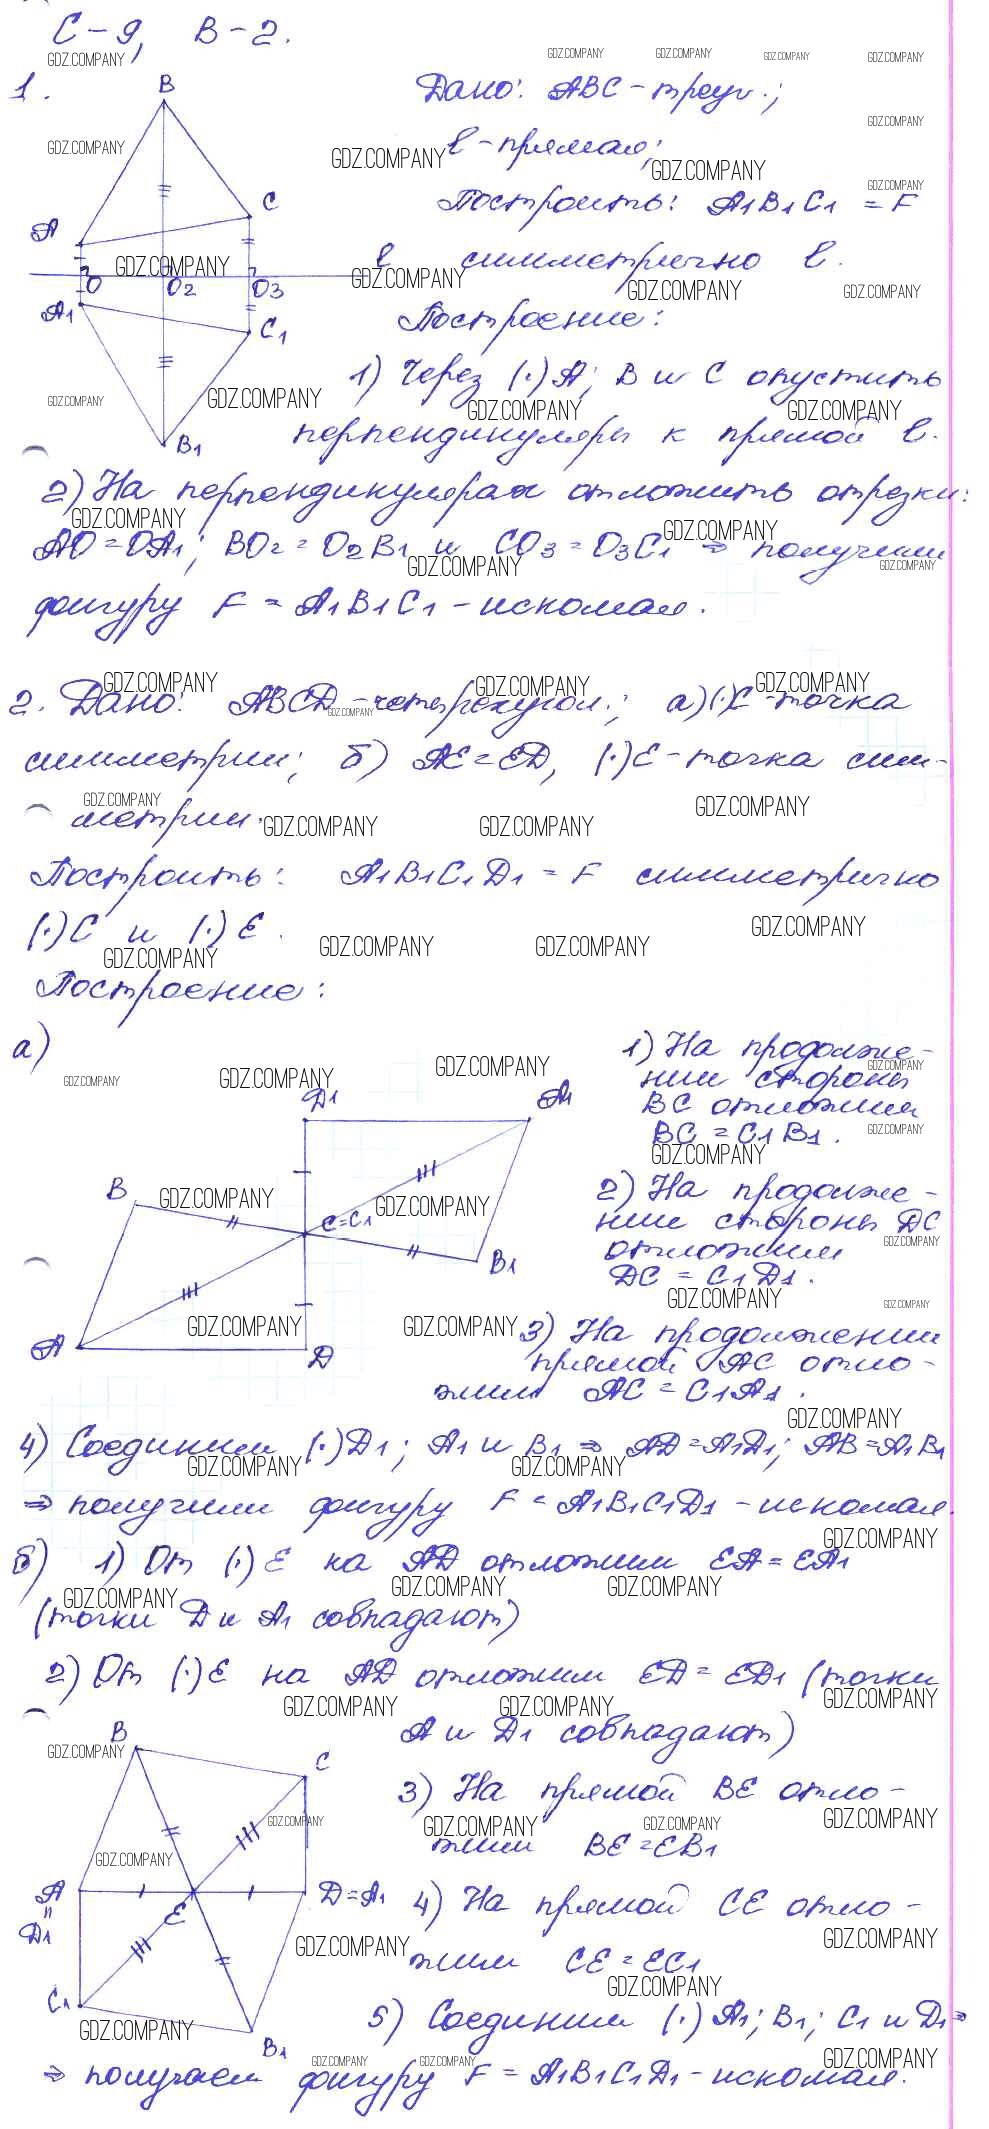 С-9, В-2.
1.
Дано: ABC - треуг.;
l - прямая;
Построить: A1B1C1 = F
симметрично l.
Построение:
1) Через (·) A; B и C опустить
перпендикуляры к прямой l.
B
C
A
O
O2
O3
l
A1
C1
B1
2) На перпендикулярах отложить отрезки:
AO = OA1; BO2 = O2B1 и CO3 = O3C1 ⇒ получим
фигуру F = A1B1C1 - искомая.
2. Дано: ABCD - четырехугол.; а) (·) C - точка
симметрии; б) AE = ED, (·) E - точка сим-
метрии.
Построить: A1B1C1D1 = F симметрично
(·) C и (·) E.
Построение:
а)
1) На продолже-
нии стороны
BC отложим
BC = C1B1.
2) На продолже-
нии стороны DC
отложим
DC = C1D1.
3) На продолжении
прямой AC отло-
жим AC = C1A1.
D1
A1
B
C=C1
B1
A
D
4) Соединим (·) D1; A1 и B1 ⇒ AD = A1D1; AB = A1B1
⇒ получим фигуру F = A1B1C1D1 - искомая.
б) 1) От (·) E на AD отложим EA = EA1
(точки D и A1 совпадают)
2) От (·) E на AD отложим ED = ED1 (точки
A и D1 совпадают)
3) На прямой BE отло-
жим BE = EB1
4) На прямой CE отло-
жим CE = EC1
5) Соединим (·) A1; B1; C1 и D1 ⇒
⇒ получаем фигуру F = A1B1C1D1 - искомая.
B
C
A
D1
E
D=A1
C1
B1
GDZ.COMPANY